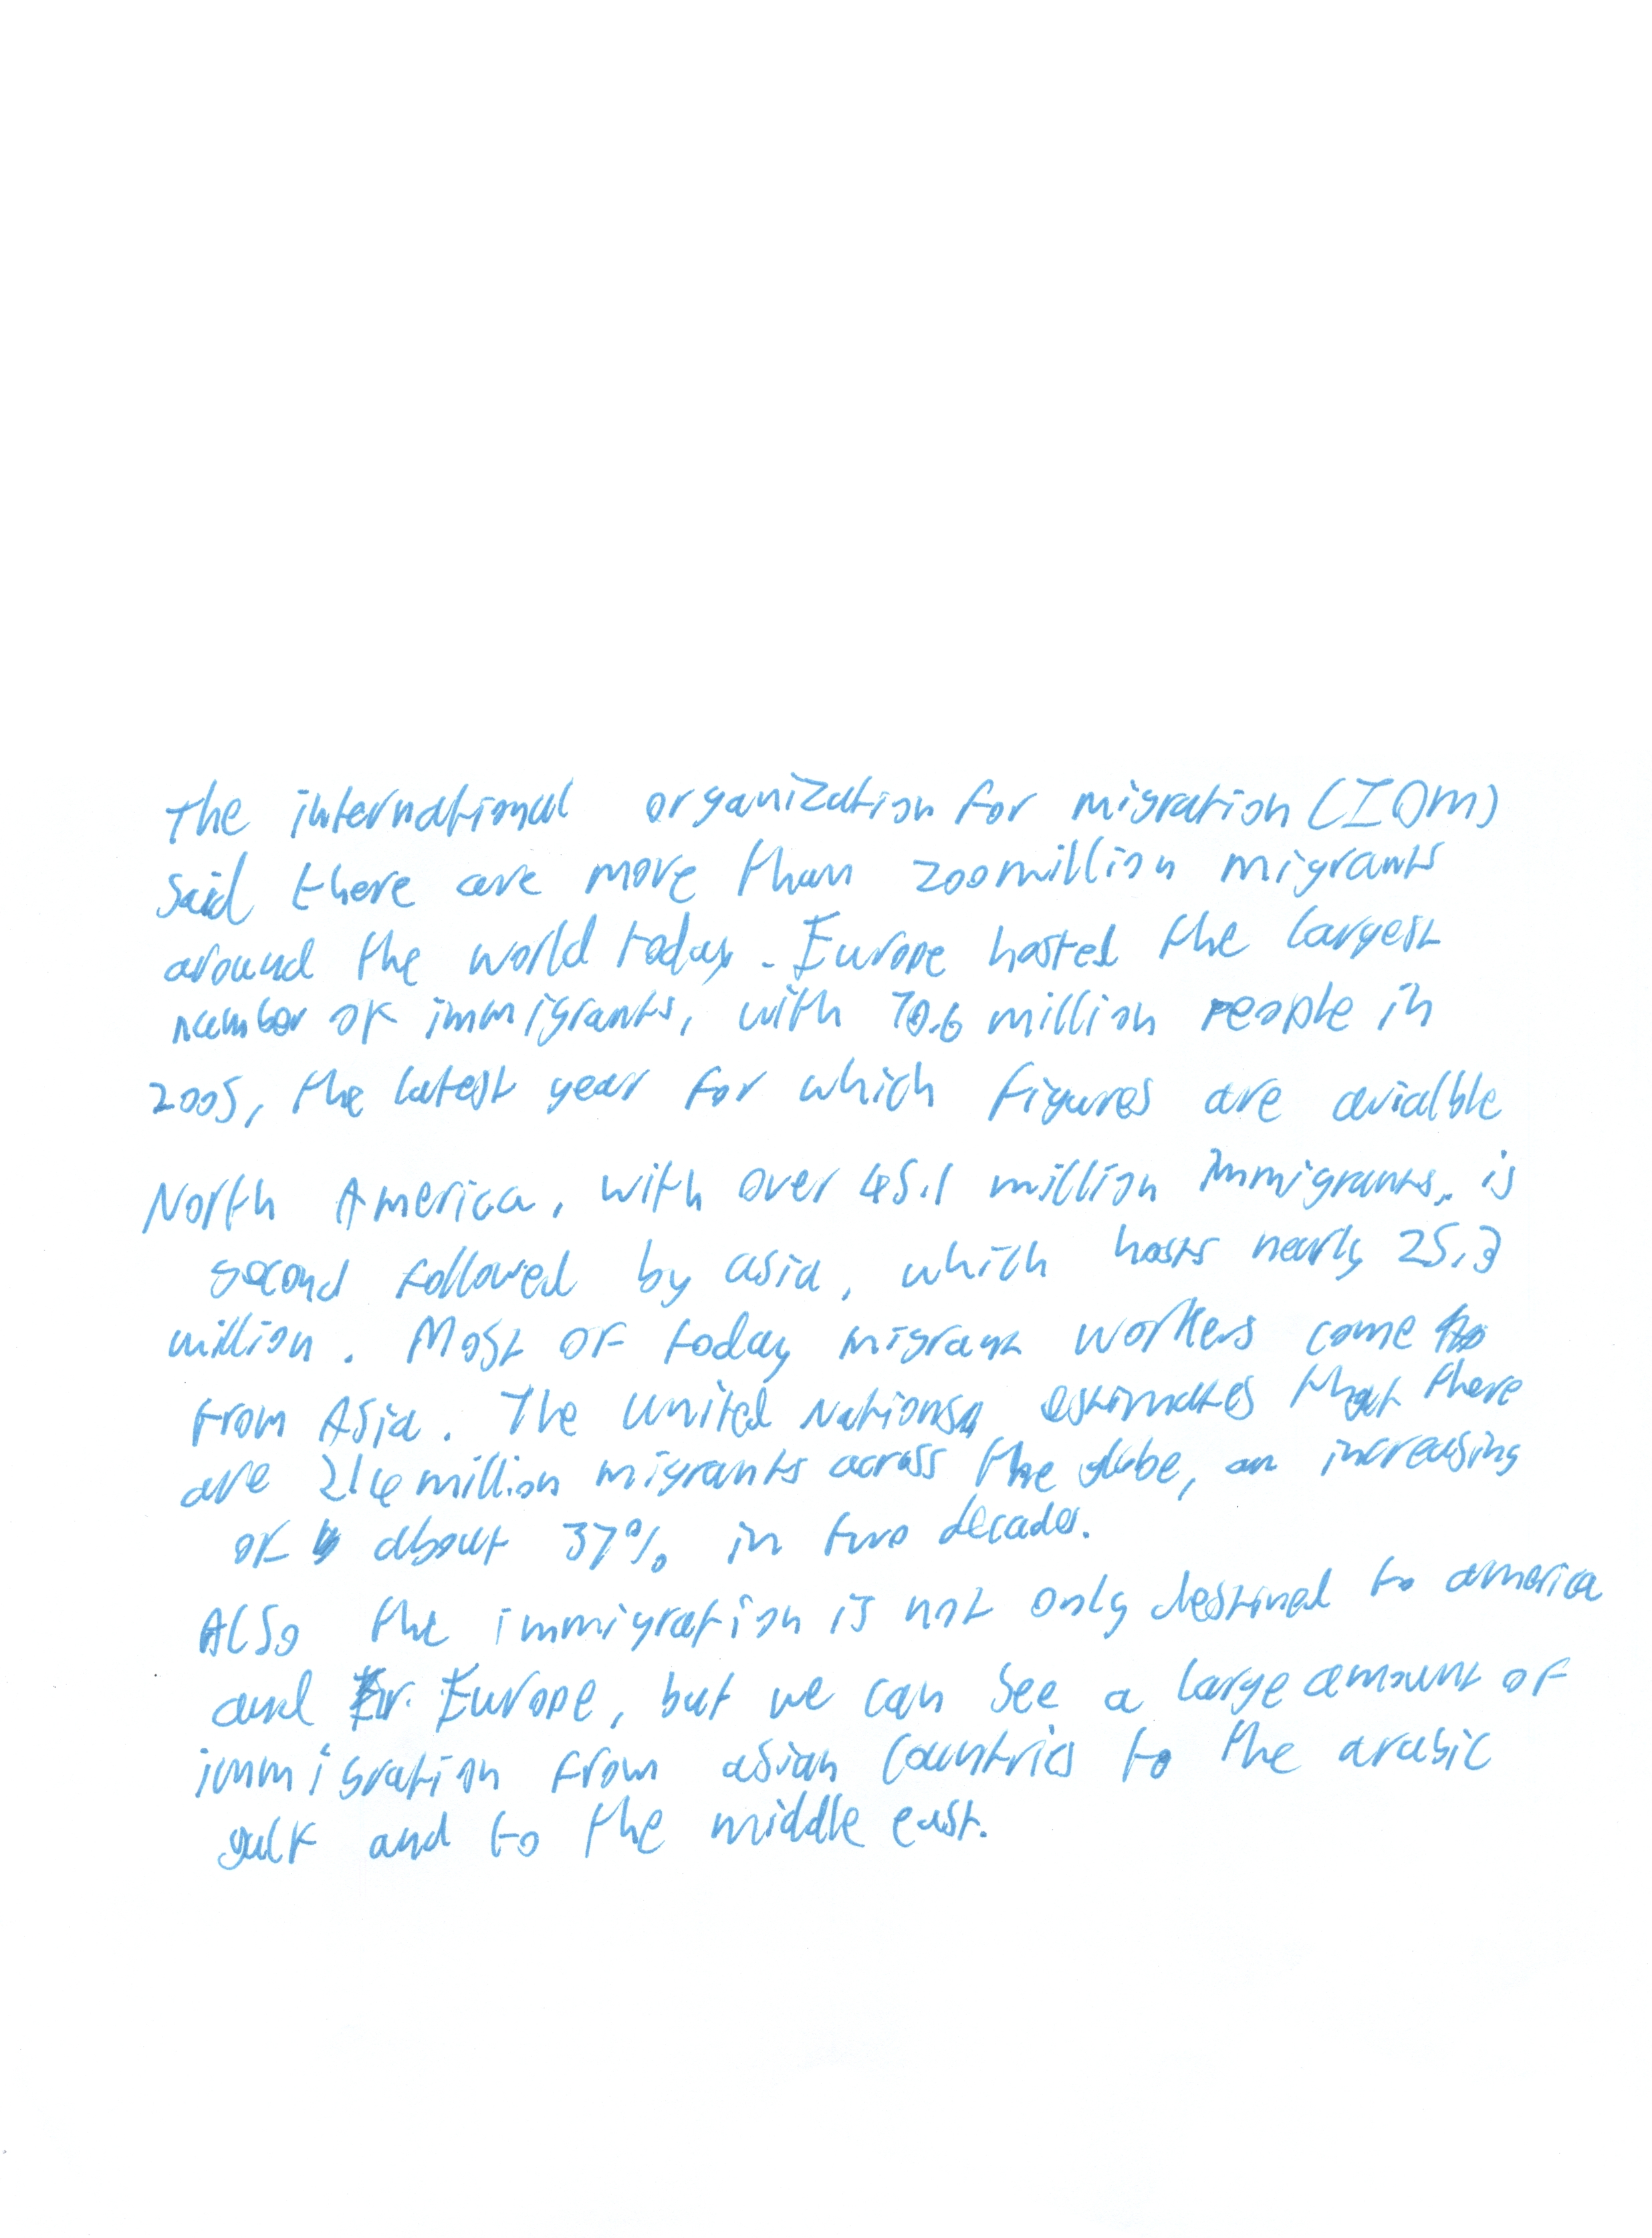 The international organization for migration (IOM)
said there are more than 200 million migrants
around the world today. Europe hosted the largest
number of immigrants, with 70.6 million people in
2005, the latest year for which figures are avialble
North America, with over 45.1 million immigrants, is
second followed by asia, which hosts nearly 25.3
million. Most of today migrant workers come
from Asia. The united Nations estimates that there
are 214 million migrants across the globe, an increasing
of about 37% in two decades.
Also the immigration is not only destined to america
and Europe, but we can see a large amount of
immigration from asian countries to the arabic
gulf and to the middle east.